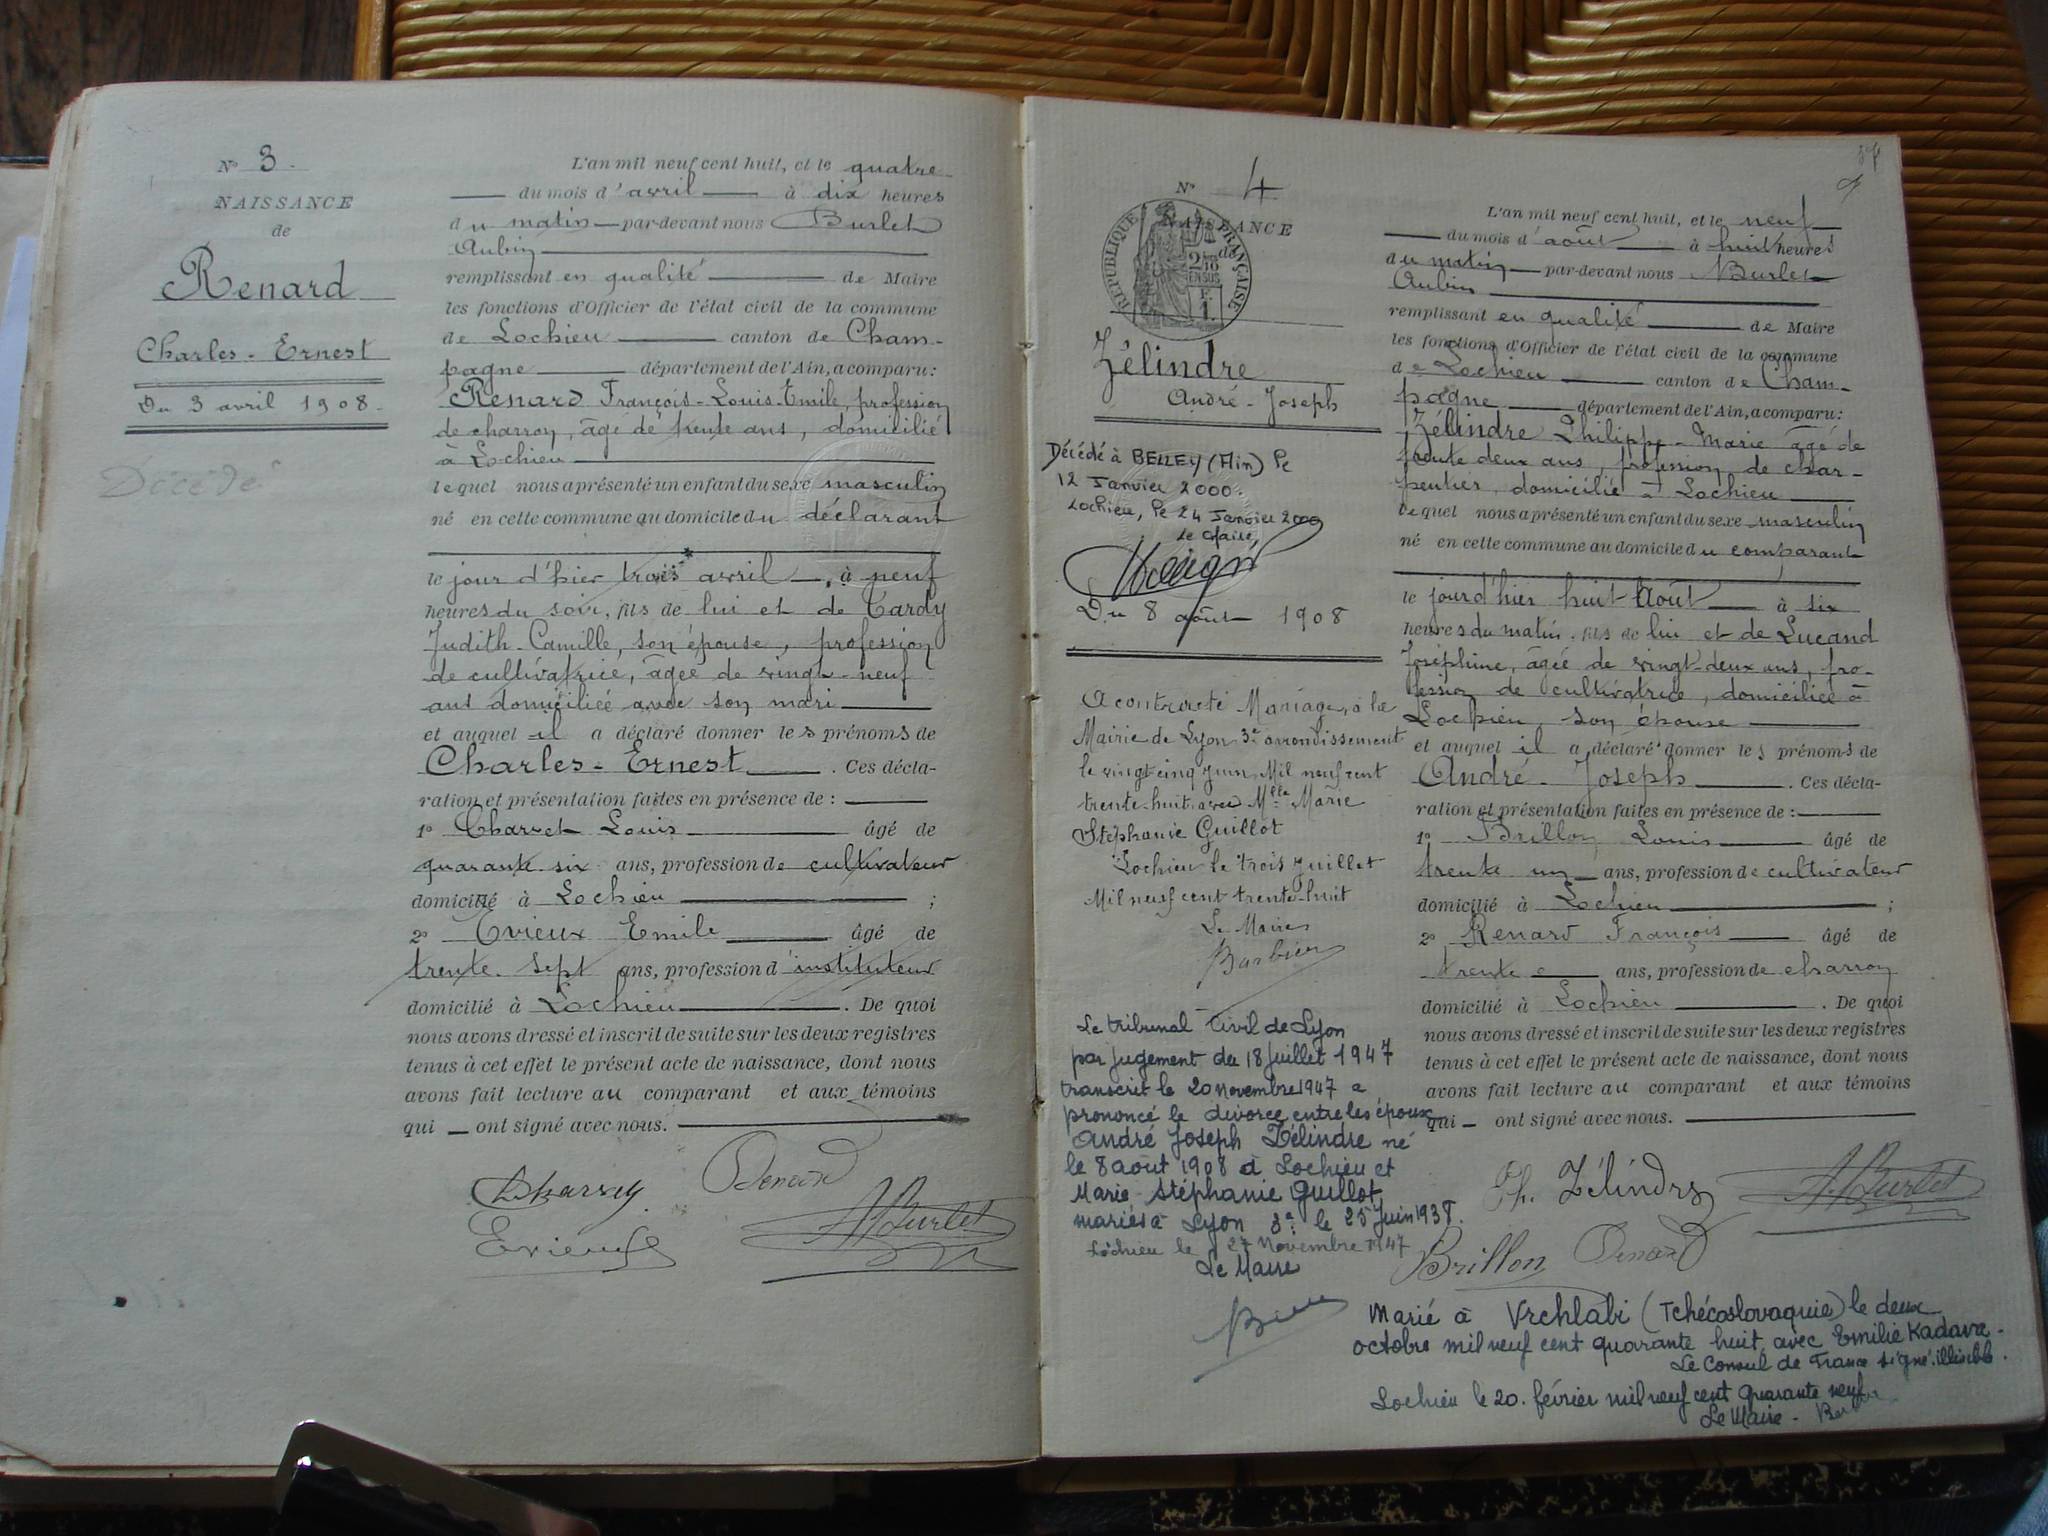 N° 3.
NAISSANCE
de
Renard
Charles-Ernest
Du 3 avril 1908.
Décédé
L'an mil neuf cent huit, et le quatre
du mois d'avril à dix heures
du matin par-devant nous Burlet
Aubin
remplissant en qualité de Maire
les fonctions d'Officier de l'état civil de la commune
de Lochieu canton de Cham-
pagne département de l'Ain, a comparu:
Renard François-Louis-Emile, profession
de charron, âgé de trente ans, domicilié
à Lochieu
lequel nous a présenté un enfant du sexe masculin
né en cette commune au domicile du déclarant
le jour d'hier trois avril, à neuf
heures du soir, fils de lui et de Tardy
Judith-Camille, son épouse, profession
de cultivatrice, âgée de vingt-neuf
ans domiciliée avec son mari
et auquel il a déclaré donner les prénoms de
Charles-Ernest. Ces décla-
ration et présentation faites en présence de:
1° Charvet Louis âgé de
quarante six ans, profession de cultivateur
domicilié à Lochieu;
2° Evieux Emile âgé de
trente-sept ans, profession d'instituteur
domicilié à Lochieu. De quoi
nous avons dressé et inscrit de suite sur les deux registres
tenus à cet effet le présent acte de naissance, dont nous
avons fait lecture au comparant et aux témoins
qui ont signé avec nous.
Charvet Renard
Evieux A Burlet
N° 4
NAISSANCE
de
REPUBLIQUE FRANÇAISE
Zélindre
André-Joseph
Décédé à BELLEY (Ain) le
12 Janvier 2000.
Lochieu, le 24 Janvier 2000
Le Maire,
Du 8 août 1908
A contracté Mariage, à la
Mairie de Lyon 3e arrondissement
le vingt cinq juin Mil neuf cent
trente-huit avec Mlle Marie
Stéphanie Guillot
Lochieu le trois juillet
Mil neuf cent trente-huit
Le Maire
Barbier
Le tribunal Civil de Lyon
par jugement du 18 Juillet 1947
transcrit le 20 novembre 1947 a
prononcé le divorce entre les époux
André Joseph Zélindre né
le 8 août 1908 à Lochieu et
Marie-Stéphanie Guillot
mariés à Lyon 3e le 25 Juin 1938.
Lochieu le 27 Novembre 1947
Le Maire
L'an mil neuf cent huit, et le neuf
du mois d'août à huit heures
du matin par-devant nous Burlet
Aubin
remplissant en qualité de Maire
les fonctions d'Officier de l'état civil de la commune
de Lochieu canton de Cham-
pagne département de l'Ain, a comparu:
Zélindre Philippe-Marie âgé de
trente deux ans, profession de char-
pentier, domicilié à Lochieu
lequel nous a présenté un enfant du sexe masculin
né en cette commune au domicile du comparant
le jour d'hier huit Août à six
heures du matin, fils de lui et de Lucand
Joséphine, âgée de vingt-deux ans, pro-
fession de cultivatrice, domiciliée à
Lochieu, son épouse
et auquel il a déclaré donner les prénoms de
André-Joseph. Ces décla-
ration et présentation faites en présence de:
1° Brillon Louis âgé de
trente un ans, profession de cultivateur
domicilié à Lochieu;
2° Renard François âgé de
trente ans, profession de charron
domicilié à Lochieu. De quoi
nous avons dressé et inscrit de suite sur les deux registres
tenus à cet effet le présent acte de naissance, dont nous
avons fait lecture au comparant et aux témoins
qui ont signé avec nous.
Ph. Zélindre A Burlet
Brillon Renard
Marié à Vrchlabi (Tchécoslovaquie) le deux
octobre mil neuf cent quarante huit avec Emilie Kadava.
Le Consul de France signé: illisible.
Lochieu le 20. février mil neuf cent quarante neuf
Le Maire -